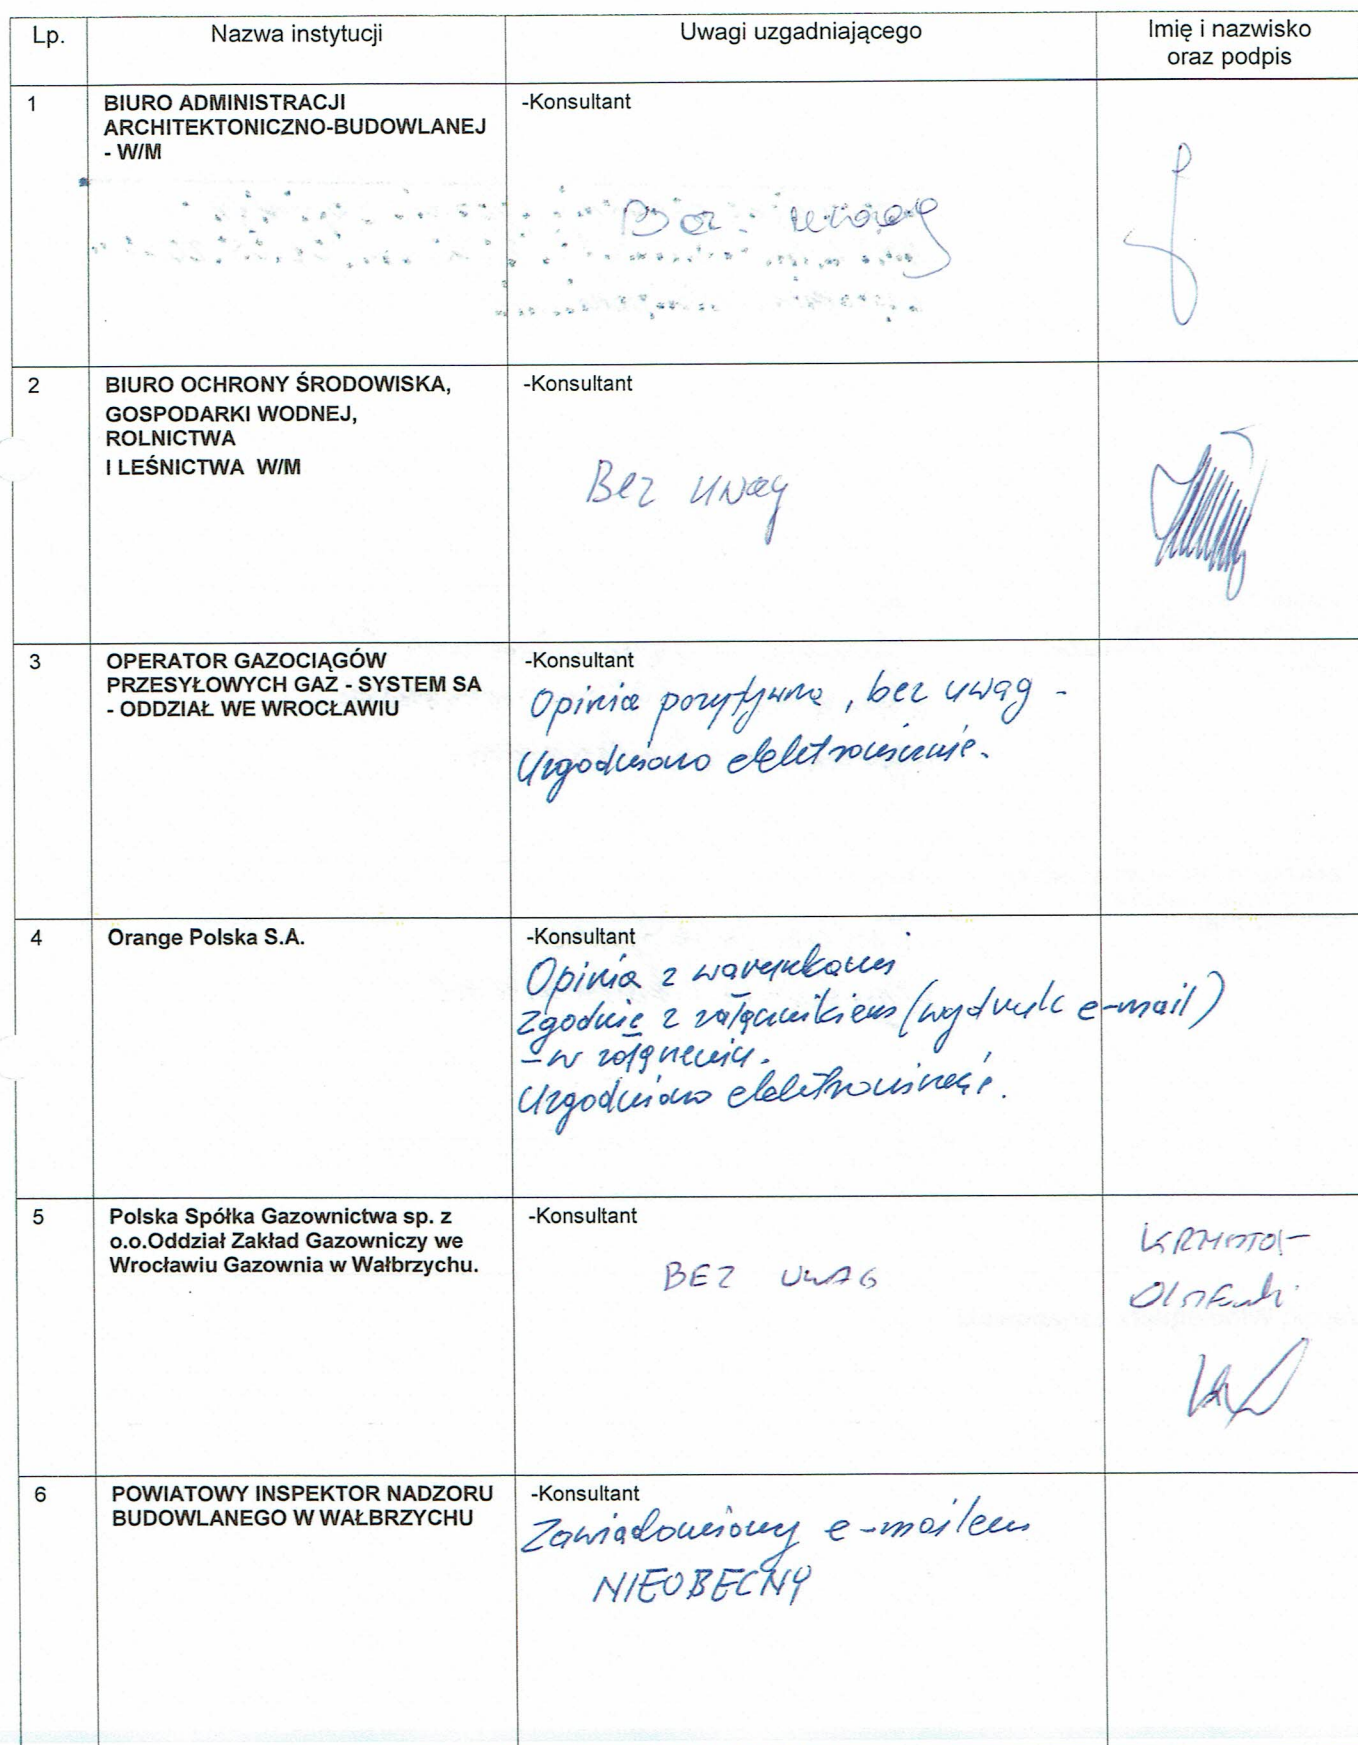 Lp.
Nazwa instytucji
Uwagi uzgadniającego
Imię i nazwisko
oraz podpis
1
BIURO ADMINISTRACJI
ARCHITEKTONICZNO-BUDOWLANEJ
- W/M
-Konsultant
Bez uwag
2
BIURO OCHRONY ŚRODOWISKA,
GOSPODARKI WODNEJ,
ROLNICTWA
I LEŚNICTWA W/M
-Konsultant
Bez uwag
3
OPERATOR GAZOCIĄGÓW
PRZESYŁOWYCH GAZ - SYSTEM SA
- ODDZIAŁ WE WROCŁAWIU
-Konsultant
Opinia pozytywna, bez uwag -
Uzgodniono elektronicznie.
4
Orange Polska S.A.
-Konsultant
Opinia z warunkami
zgodnie z załącznikiem (wydruk e-mail)
- w załączeniu.
Uzgodniono elektronicznie.
5
Polska Spółka Gazownictwa sp. z
o.o.Oddział Zakład Gazowniczy we
Wrocławiu Gazownia w Wałbrzychu.
-Konsultant
BEZ UWAG
6
POWIATOWY INSPEKTOR NADZORU
BUDOWLANEGO W WAŁBRZYCHU
-Konsultant
Zawiadomiony e-mailem
NIEOBECNY